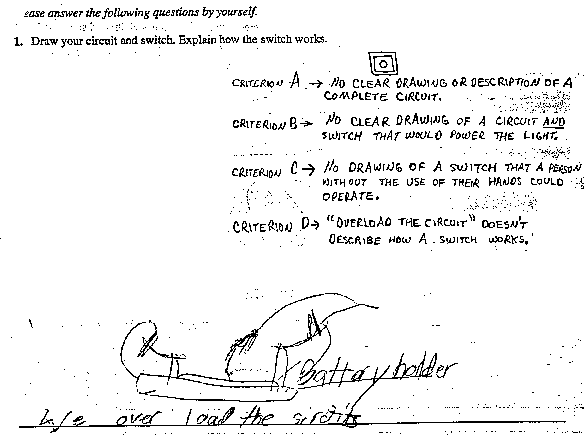 ease answer the following questions by yourself.
1. Draw your circuit and switch. Explain how the switch works.
0
CRITERION A → NO CLEAR DRAWING OR DESCRIPTION OF A
COMPLETE CIRCUIT.
CRITERION B → NO CLEAR DRAWING OF A CIRCUIT AND
SWITCH THAT WOULD POWER THE LIGHT.
CRITERION C → NO DRAWING OF A SWITCH THAT A PERSON
WITHOUT THE USE OF THEIR HANDS COULD
OPERATE.
CRITERION D → "OVERLOAD THE CIRCUIT" DOESN'T
DESCRIBE HOW A SWITCH WORKS.
Battary holder
over load the